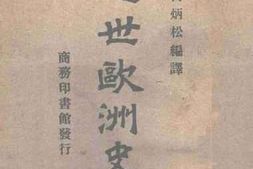 炳松編譯
世歐洲史
商務印書館發行